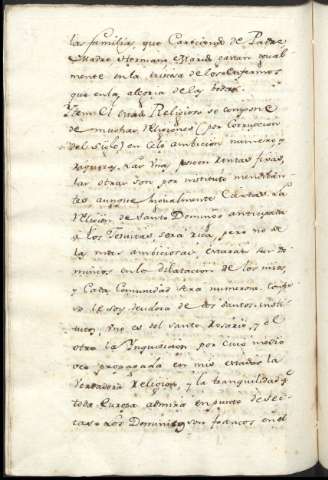 las familias que Careciendo de Padre
Madre Hermana Marido gastan igual
mente en la tristeza de los Enfermos
que en la alegria de las bodas.
Item El Religion se compone
de muchas religiones (por Corrupcion
del siglo) en Celo ambicion numero y
riqueza. Las Una poseen Rentas fixas,
las otras son por instituto mendican-
tes aunque igualmente Caritas. La
religion de Santo Domingo anticipada
a los Jesuitas, sera rica, pero no de
la mas ambiciosa. Estaran sus Do
minios en la dilatacion de los mios,
y Cada Comunidad sera numerosa. Confie
so le soy deudora de dos santos insti
tutos, Uno es del santo Rosario, y el
otro la Ynquisicion por cuio medio
veo propagada en mis estados la
verdadera Religion, y la tranquilidad q.
toda Europa admira en punto de sec-
tas. Los Dominicos son francos en el